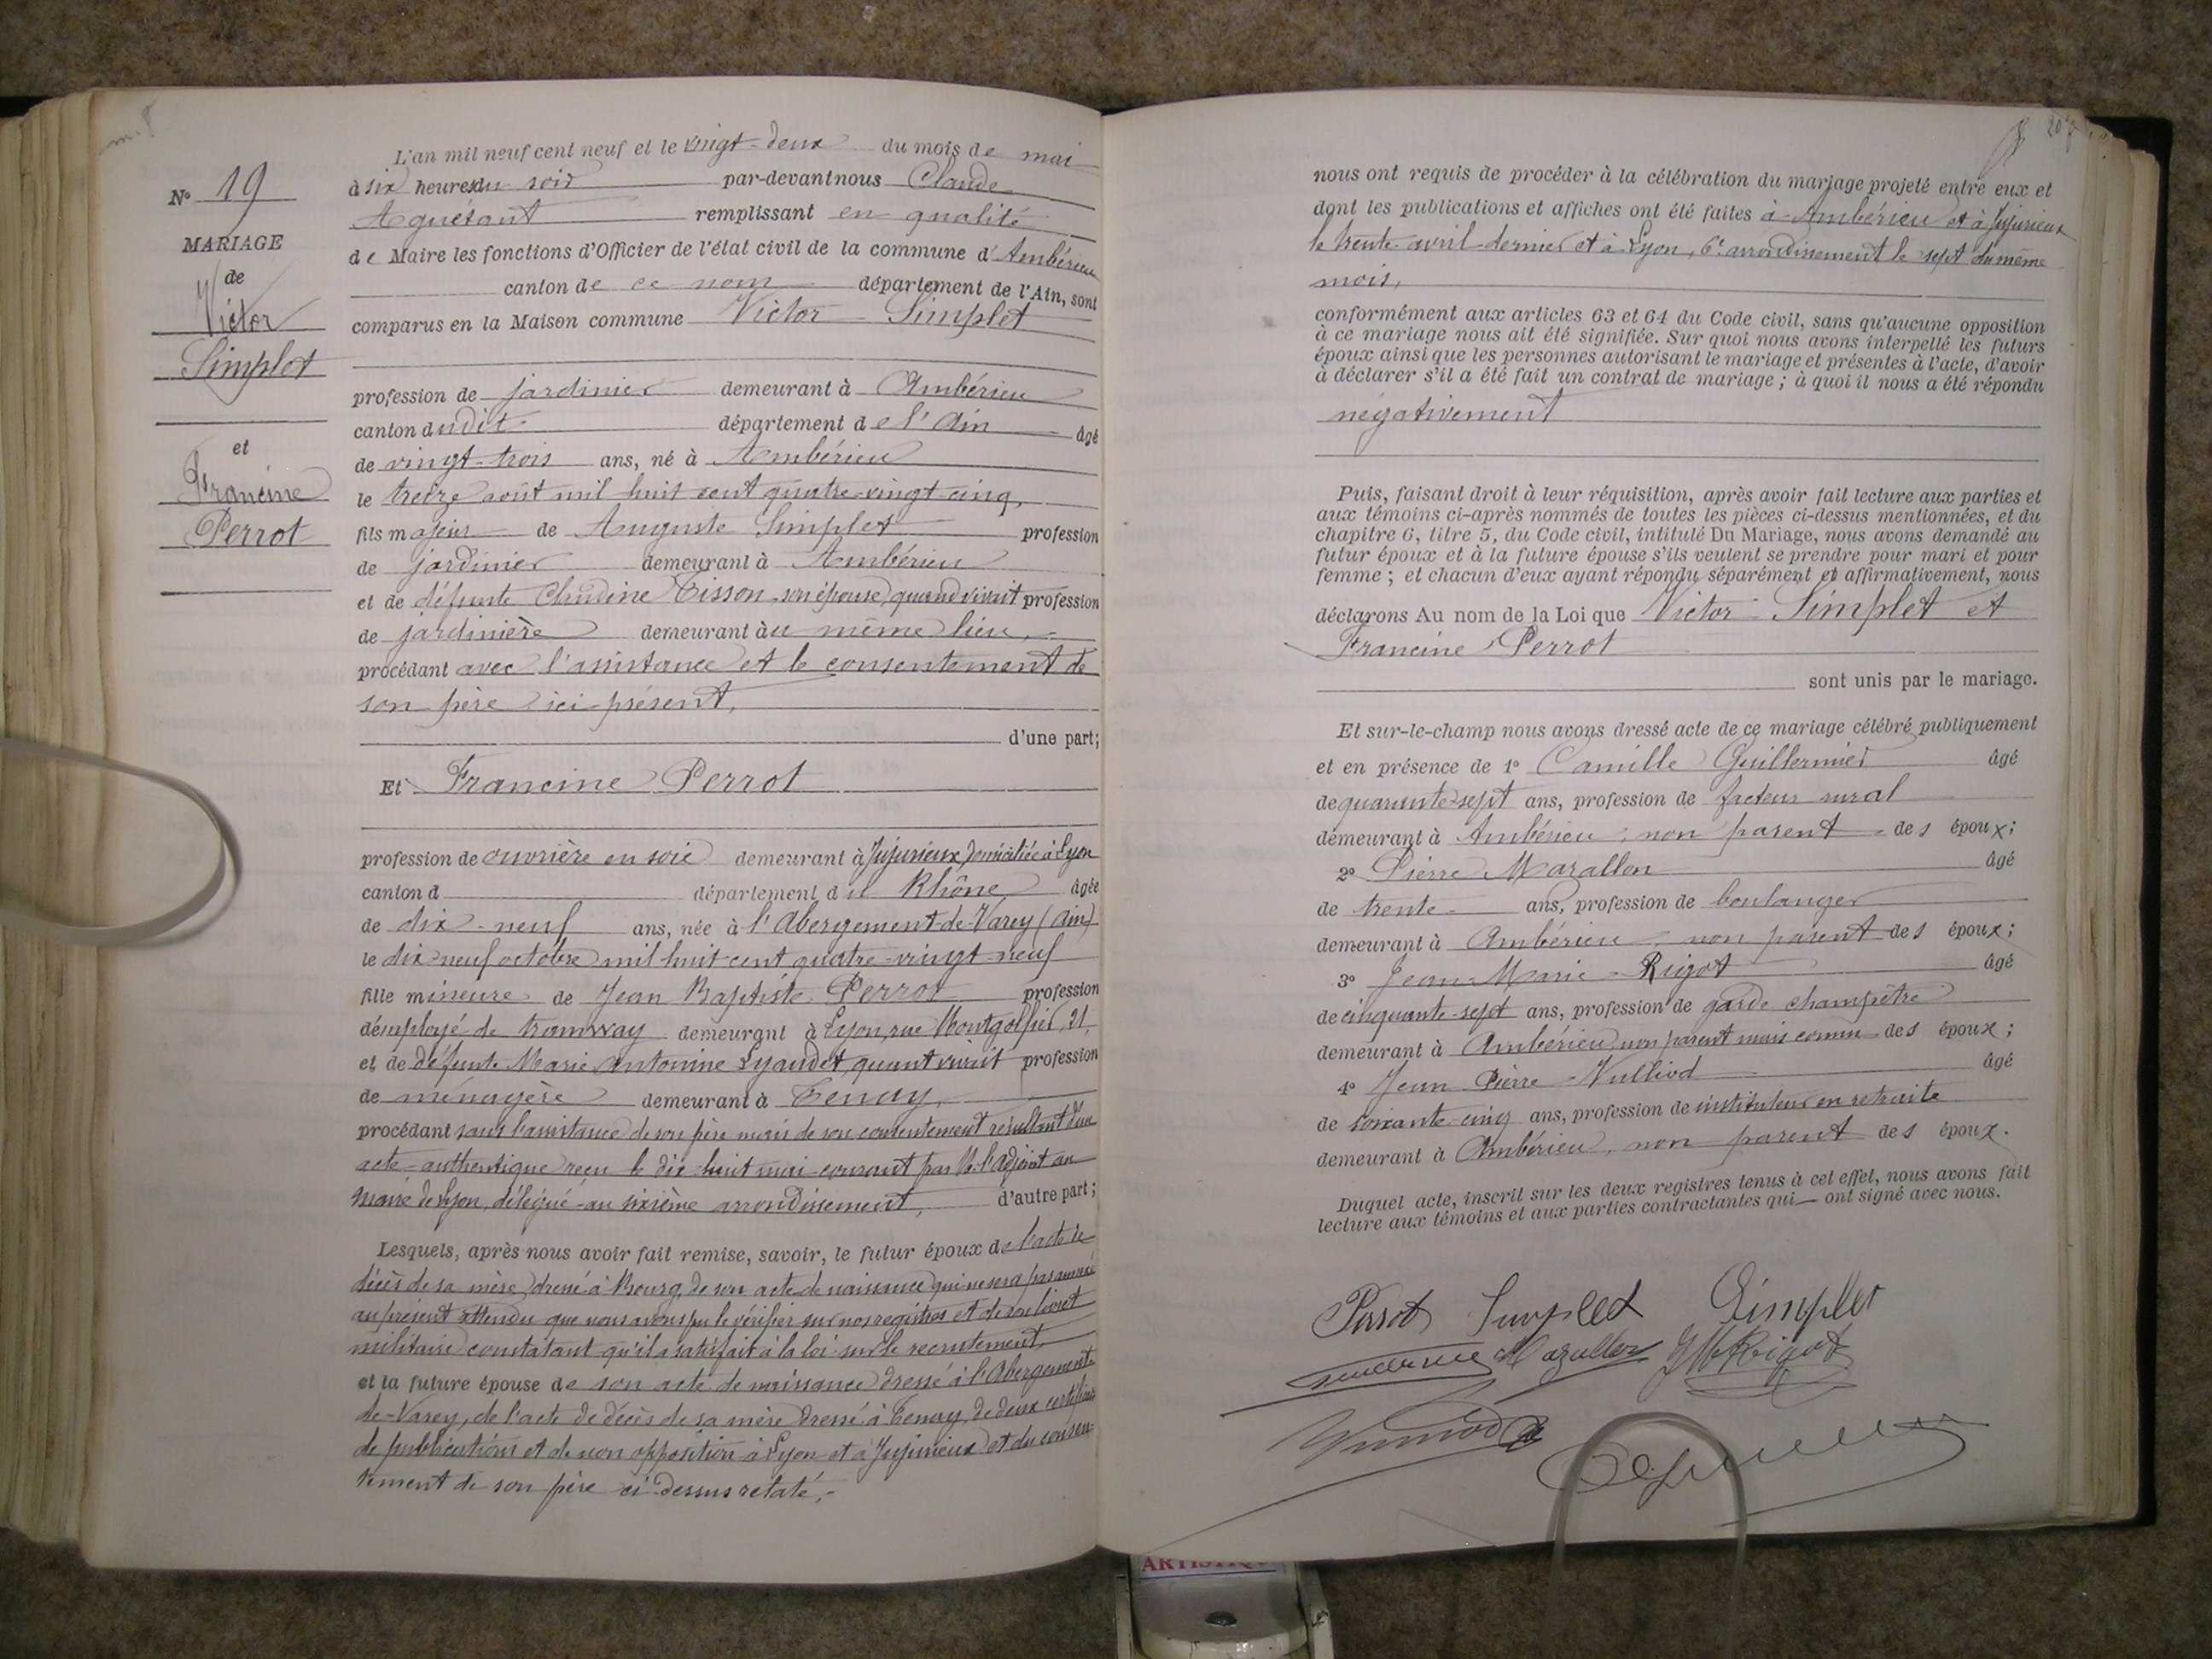 N° 19
MARIAGE
de
Victor
Simplet
et
Francine
Perrot
L'an mil neuf cent neuf et le vingt-deux du mois de mai
à six heures du soir par-devant nous Claude
Aguétant remplissant en qualité
de Maire les fonctions d'Officier de l'état civil de la commune d'Ambérieu
canton de ce nom département de l'Ain, sont
comparus en la Maison commune Victor Simplet
profession de jardinier demeurant à Ambérieu
canton dudit département de l'Ain âgé
de vingt-trois ans, né à Ambérieu
le treize août mil huit cent quatre-vingt cinq,
fils majeur de Auguste Simplet profession
de jardinier demeurant à Ambérieu
et de défunte Claudine Tisson, son épouse, quand vivait profession
de jardinière demeurant au même lieu,
procédant avec l'assistance et le consentement de
son père ici présent,
d'une part;
Et Francine Perrot
profession de ouvrière en soie demeurant à Jujurieux, domiciliée à Lyon
canton d département du Rhône âgée
de dix-neuf ans, née à l'Abergement-de-Varey (Ain)
le dix neuf octobre mil huit cent quatre-vingt-neuf
fille mineure de Jean Baptiste Perrot profession
d'employé de tramway demeurant à Lyon, rue Montgolfier, 21,
et de défunte Marie Antonine Lyaudet, quant vivait profession
de ménagère demeurant à Tenay,
procédant sans l'assistance de son père mais de son consentement résultant d'un
acte authentique reçu le dix-huit mai courant par M. l'adjoint au
maire de Lyon, délégué au sixième arrondissement, d'autre part;
Lesquels, après nous avoir fait remise, savoir, le futur époux de l'acte de
décès de sa mère, dressé à Bourg, de son acte de naissance qui ne sera pas annexé
au présent attendu que nous avons pu le vérifier sur nos registres et de son livret
militaire constatant qu'il a satisfait à la loi sur le recrutement,
et la future épouse de son acte de naissance dressé à l'Abergement-
de-Varey, de l'acte de décès de sa mère dressé à Tenay, de deux certificats
de publications et de non opposition à Lyon et à Jujurieux et du consen-
tement de son père ci-dessus relaté.
nous ont requis de procéder à la célébration du mariage projeté entre eux et
dont les publications et affiches ont été faites à Ambérieu et à Jujurieux
le trente avril dernier et à Lyon, 6e arrondissement le sept du même
mois,
conformément aux articles 63 et 64 du Code civil, sans qu'aucune opposition
à ce mariage nous ait été signifiée. Sur quoi nous avons interpellé les futurs
époux ainsi que les personnes autorisant le mariage et présentes à l'acte, d'avoir
à déclarer s'il a été fait un contrat de mariage; à quoi il nous a été répondu
négativement
Puis, faisant droit à leur réquisition, après avoir fait lecture aux parties et
aux témoins ci-après nommés de toutes les pièces ci-dessus mentionnées, et du
chapitre 6, titre 5, du Code civil, intitulé Du Mariage, nous avons demandé au
futur époux et à la future épouse s'ils veulent se prendre pour mari et pour
femme; et chacun d'eux ayant répondu séparément et affirmativement, nous
déclarons Au nom de la Loi que Victor Simplet et
Francine Perrot
sont unis par le mariage.
Et sur-le-champ nous avons dressé acte de ce mariage célébré publiquement
et en présence de 1° Camille Guillermier âgé
de quarante-sept ans, profession de facteur rural
demeurant à Ambérieu, non parent des époux;
2° Pierre Marallon âgé
de trente ans, profession de boulanger
demeurant à Ambérieu, non parent des époux;
3° Jean-Marie Rigot âgé
de cinquante-sept ans, profession de garde champêtre
demeurant à Ambérieu, non parent mais connu des époux;
4° Jean Pierre Vulliod âgé
de soixante-cinq ans, profession de instituteur en retraite
demeurant à Ambérieu, non parent des époux.
Duquel acte, inscrit sur les deux registres tenus à cet effet, nous avons fait
lecture aux témoins et aux parties contractantes qui ont signé avec nous.
Perrot Simplet Simplet
Marallon JM Rigot